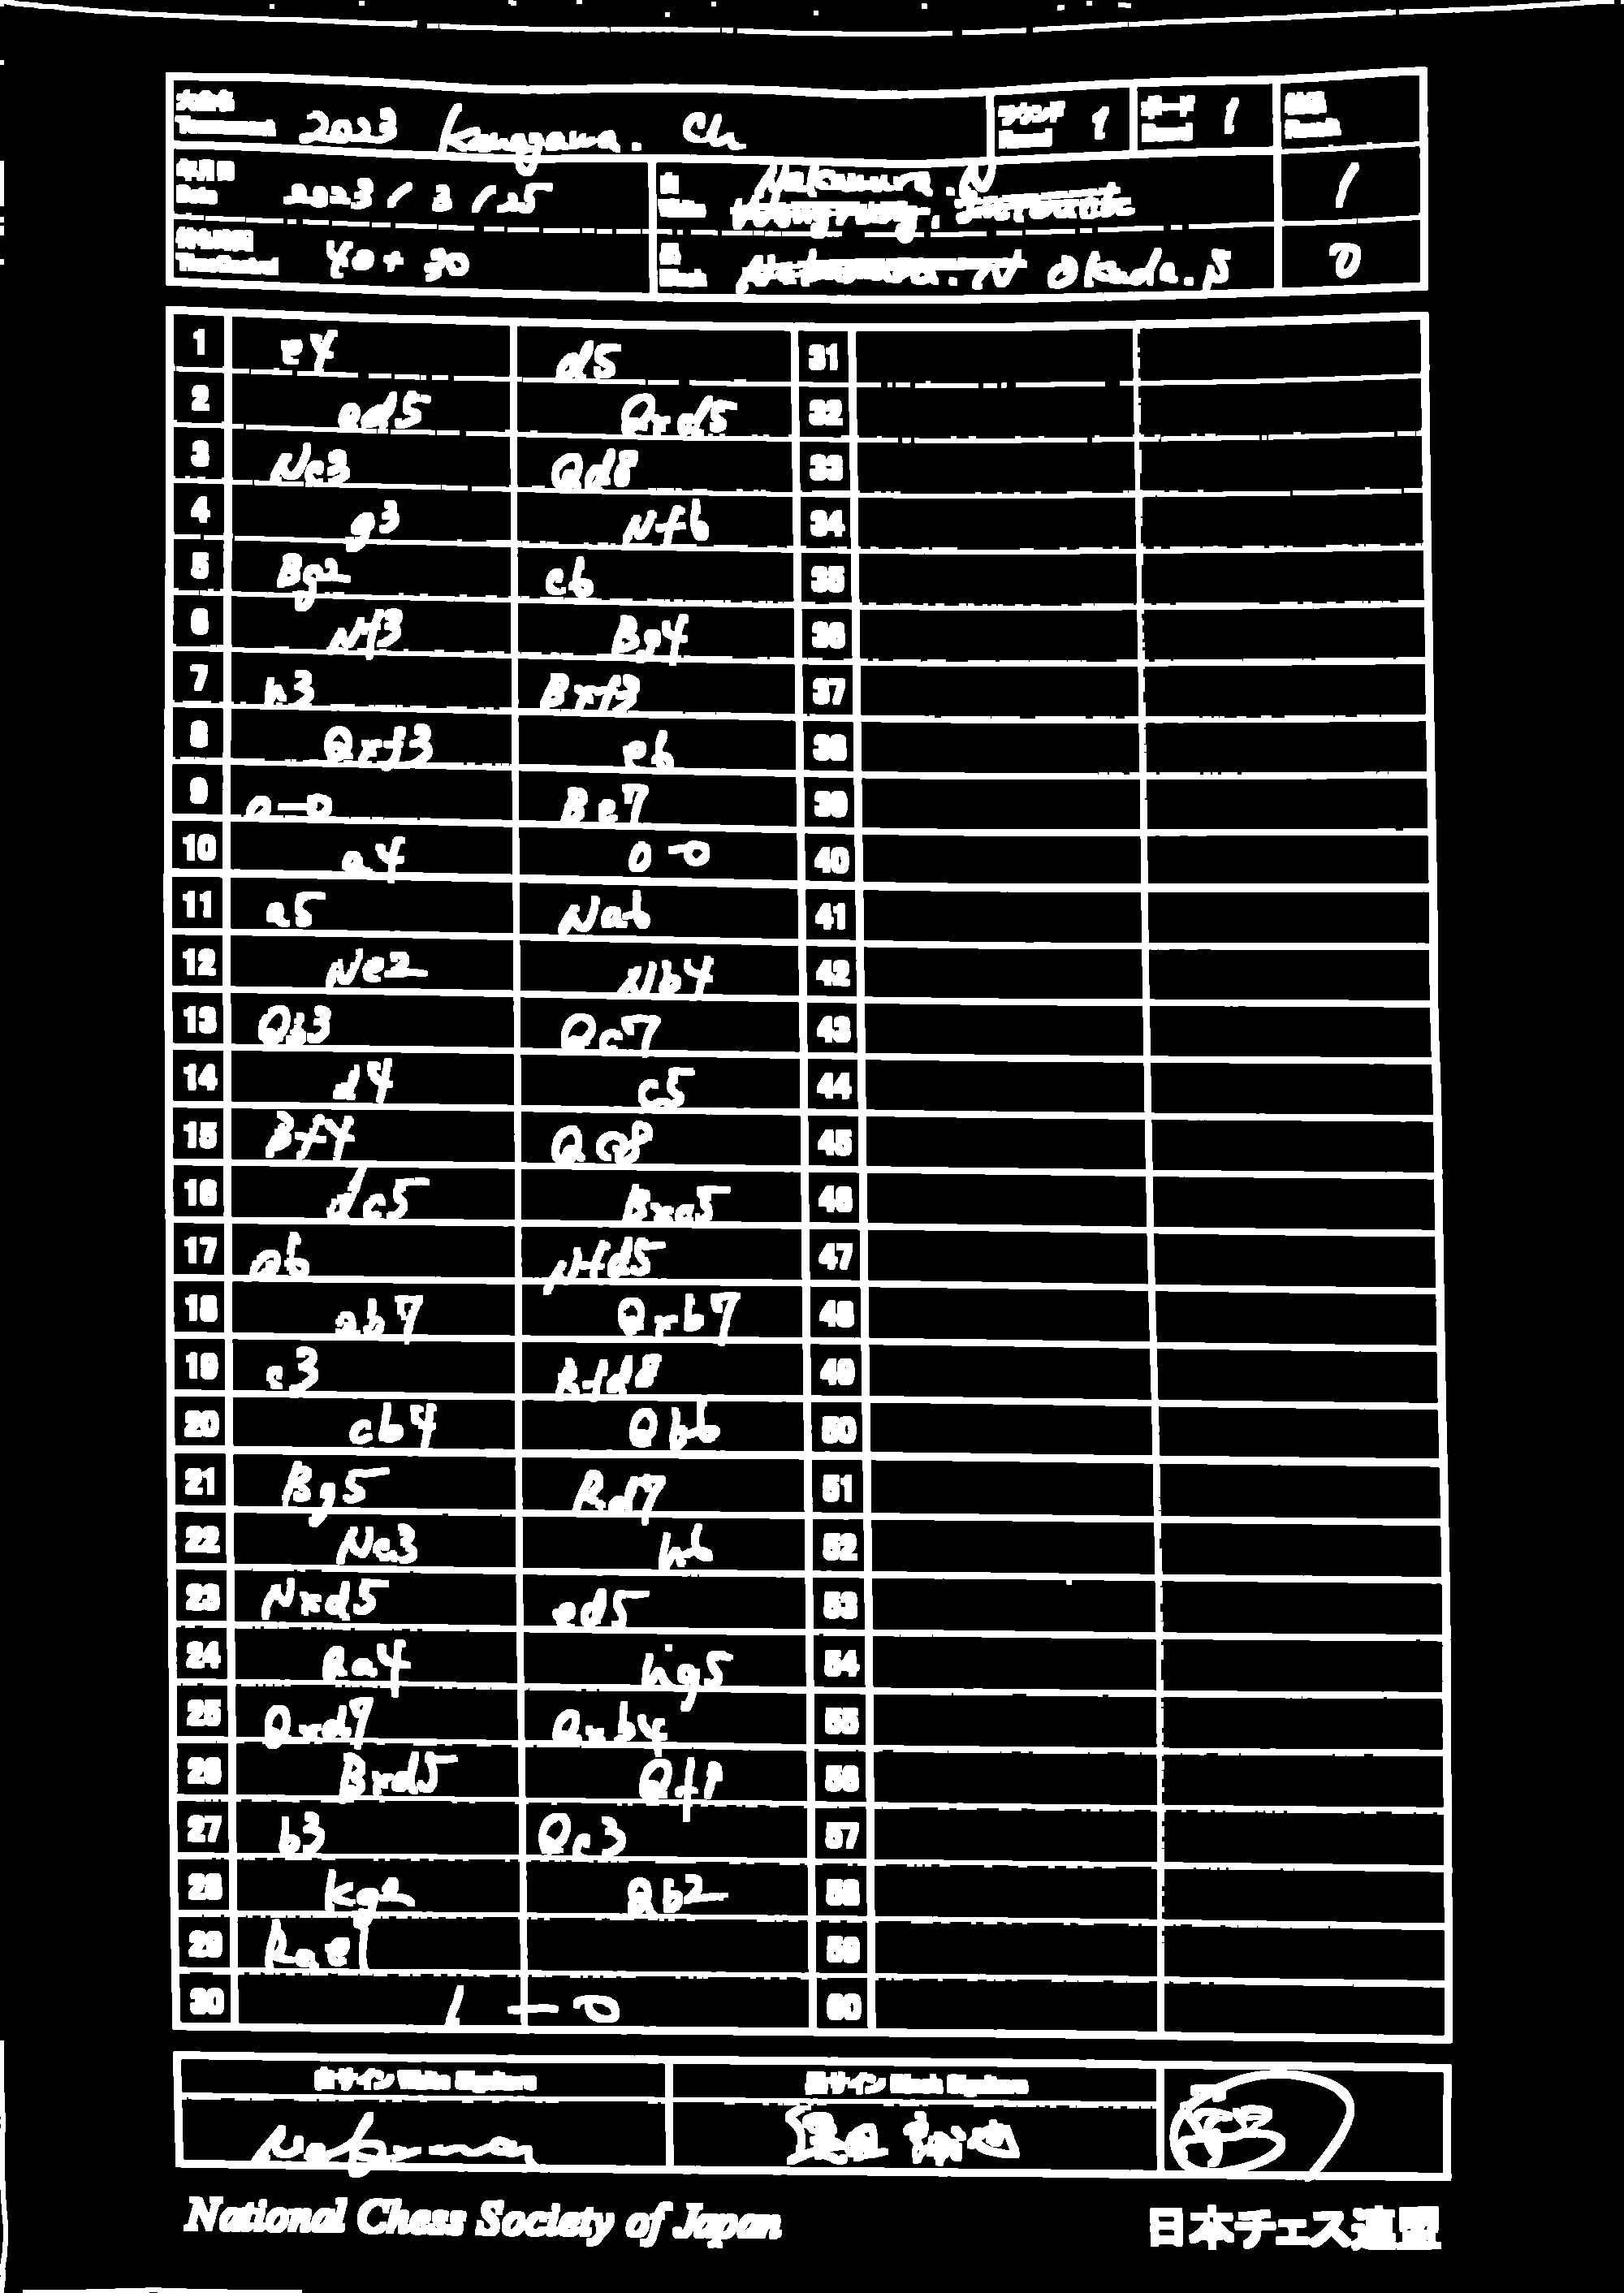 大会名
Tournament 2023 Kanagawa. Ch
ラウンド
Round 1
ボード
Board 1
結果
Result
年月日
Date 2023 / 3 / 25
白
White Nakamura. N
1
持ち時間
Time Control 40 + 30
黒
Black Nakamura. N Okada. S
0
1 e4 d5 31
2 ed5 Qxd5 32
3 Nc3 Qd8 33
4 g3 Nf6 34
5 Bg2 c6 35
6 Nf3 Bg4 36
7 h3 Bxf3 37
8 Qxf3 e6 38
9 0-0 Be7 39
10 a4 0-0 40
11 a5 Na6 41
12 Ne2 Nb4 42
13 Qb3 Qc7 43
14 d4 c5 44
15 Bf4 Qc8 45
16 dc5 Bxc5 46
17 a6 Nfd5 47
18 ab7 Qxb7 48
19 c3 Rfd8 49
20 cb4 Qb6 50
21 Bg5 Rd7 51
22 Nc3 h6 52
23 Nxd5 ed5 53
24 Qa4 hg5 54
25 Qxd7 Qxb4 55
26 Bxd5 Qf8 56
27 b3 Qc3 57
28 Kg2 Qb2 58
29 Rae1 59
30 1 - 0 60
白サイン White Signature 黒サイン Black Signature
National Chess Society of Japan 日本チェス連盟